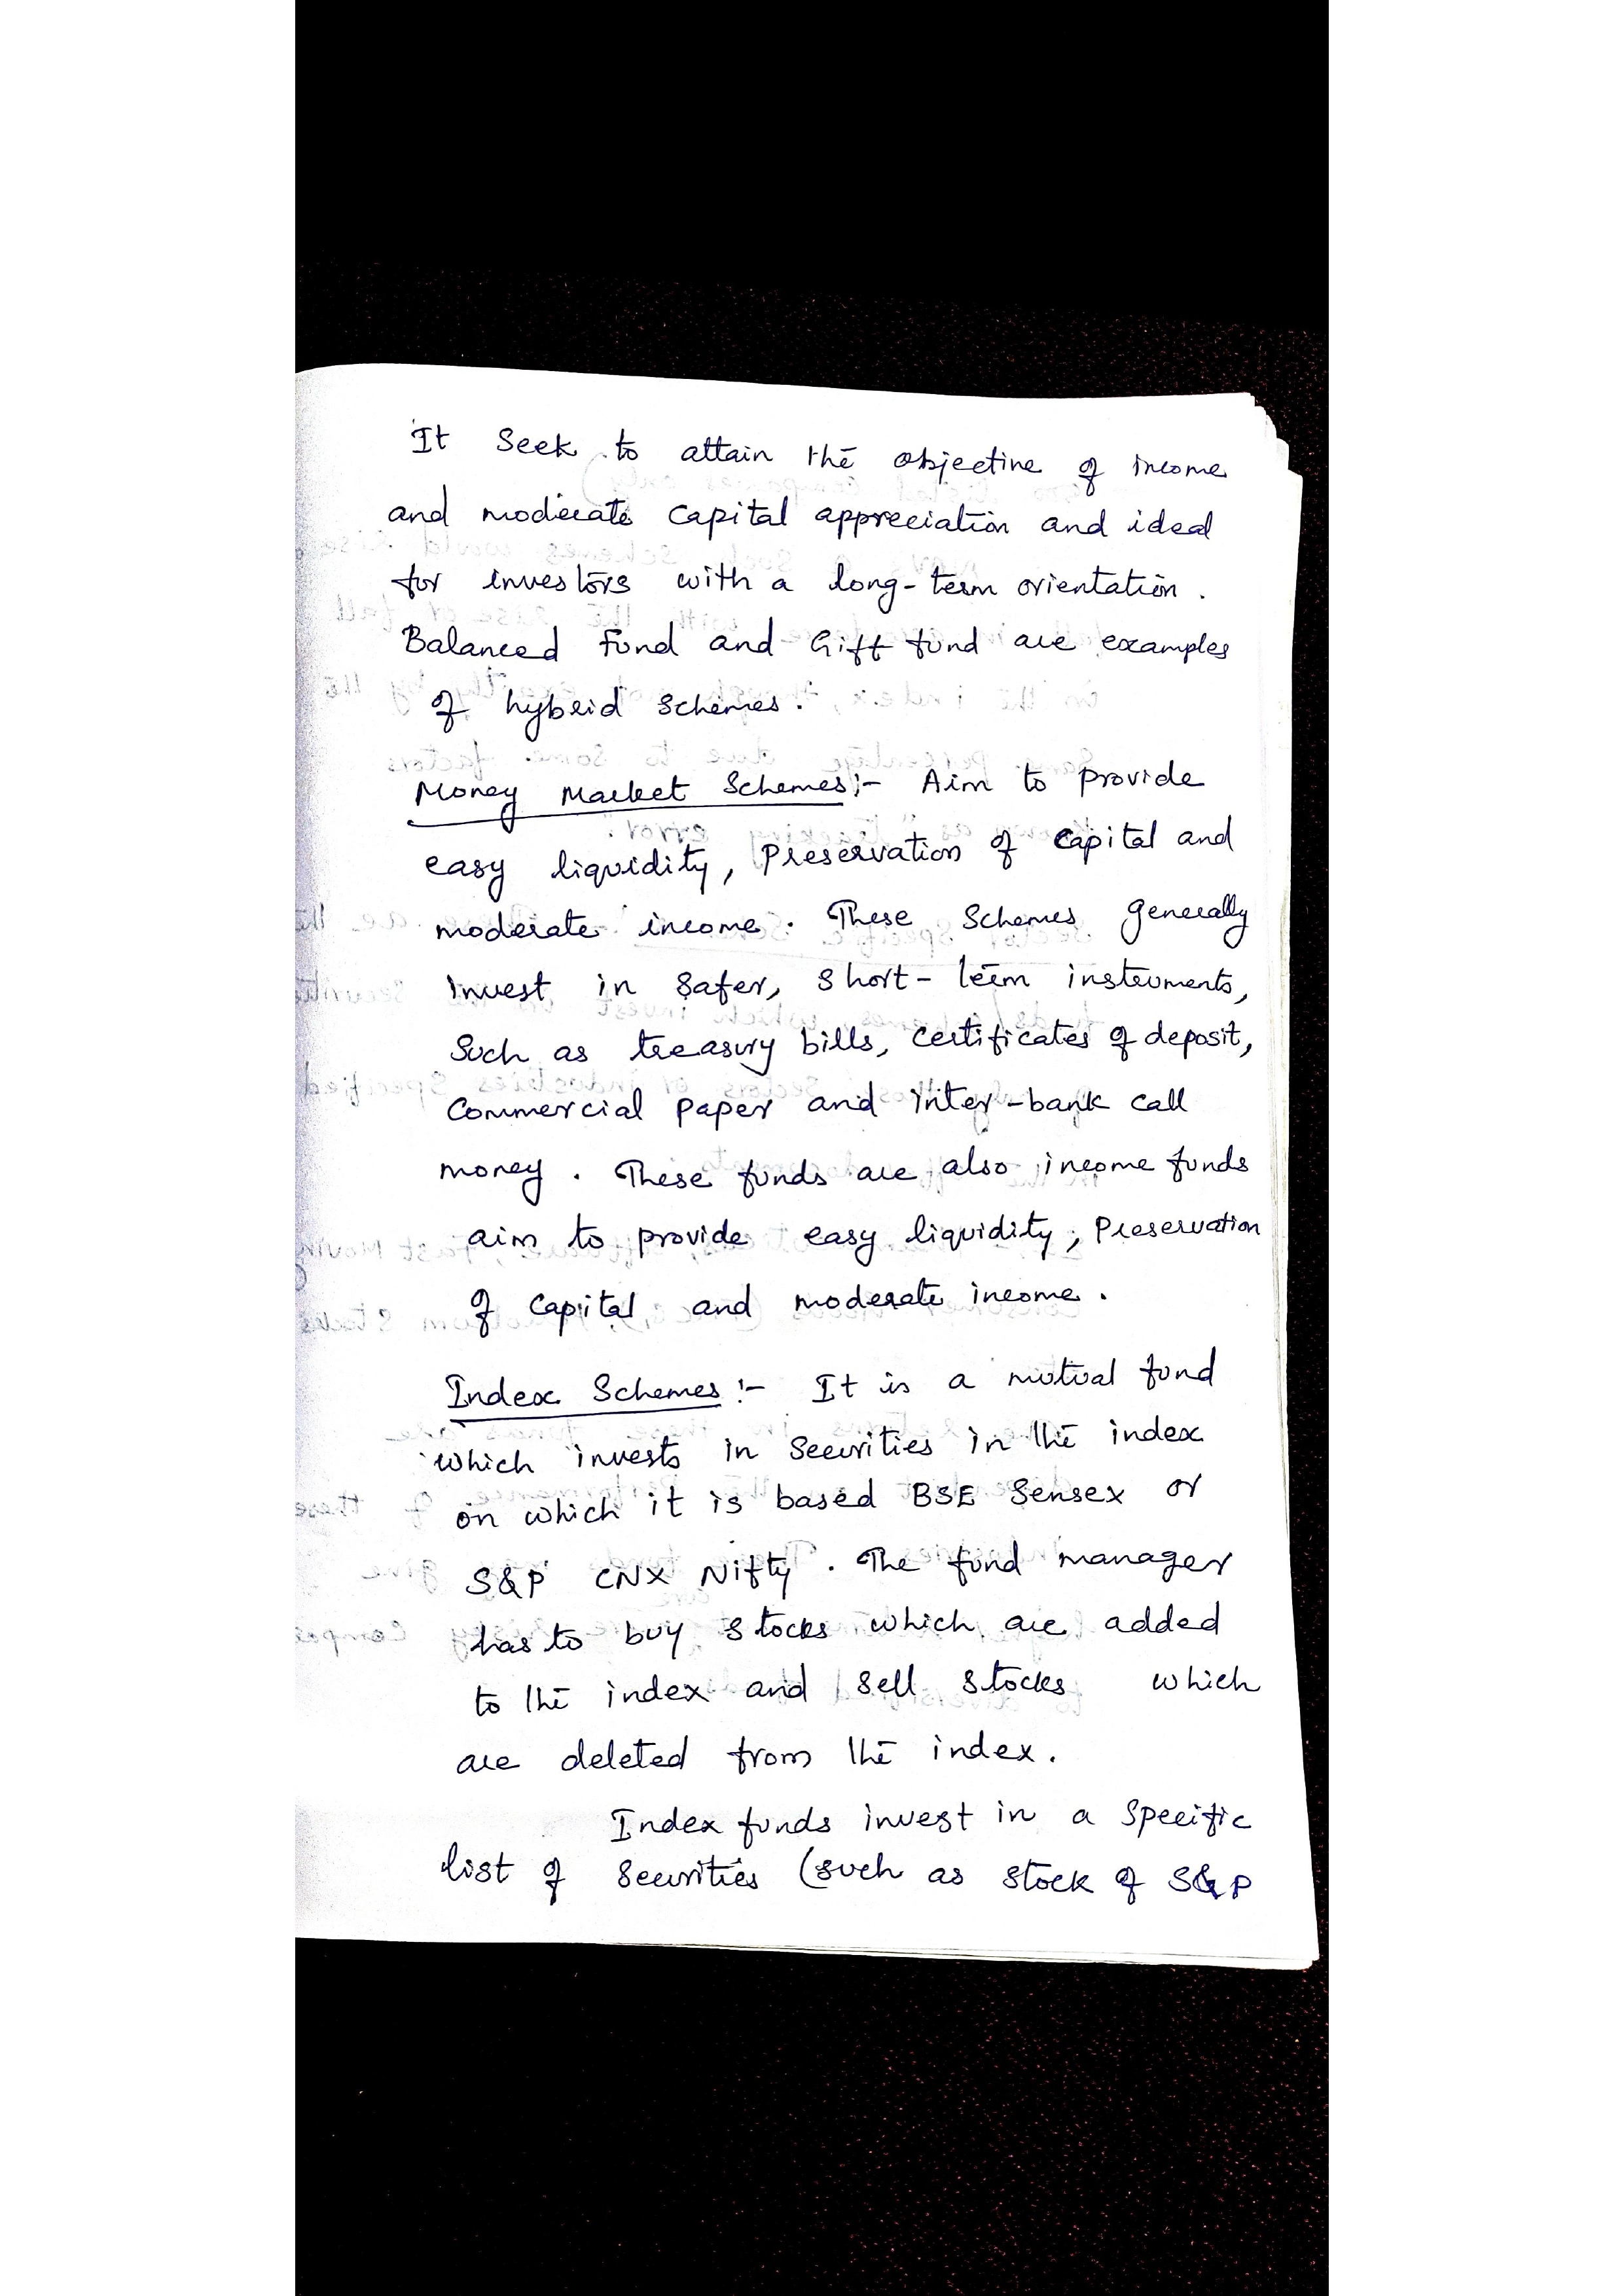 It Seek to attain the objective of income
and moderate capital appreciation and ideal
for investors with a long-term orientation.
Balanced Fund and Gift fund are examples
of hybrid schemes.
Money Market Schemes:- Aim to provide
easy liquidity, Preservation of capital and
moderate income. These Schemes generally
invest in safer, short-term instruments,
Such as treasury bills, certificates of deposit,
Commercial paper and inter-bank call
money. These funds are also income funds
aim to provide easy liquidity; Preservation
of capital and moderate income.
Index Schemes:- It is a mutual fund
which invests in Securities in the index
on which it is based BSE Sensex or
S&P CNX Nifty. The fund manager
has to buy stocks which are added
to the index and sell stocks which
are deleted from the index.
Index funds invest in a specific
list of securities (such as stock of S&P